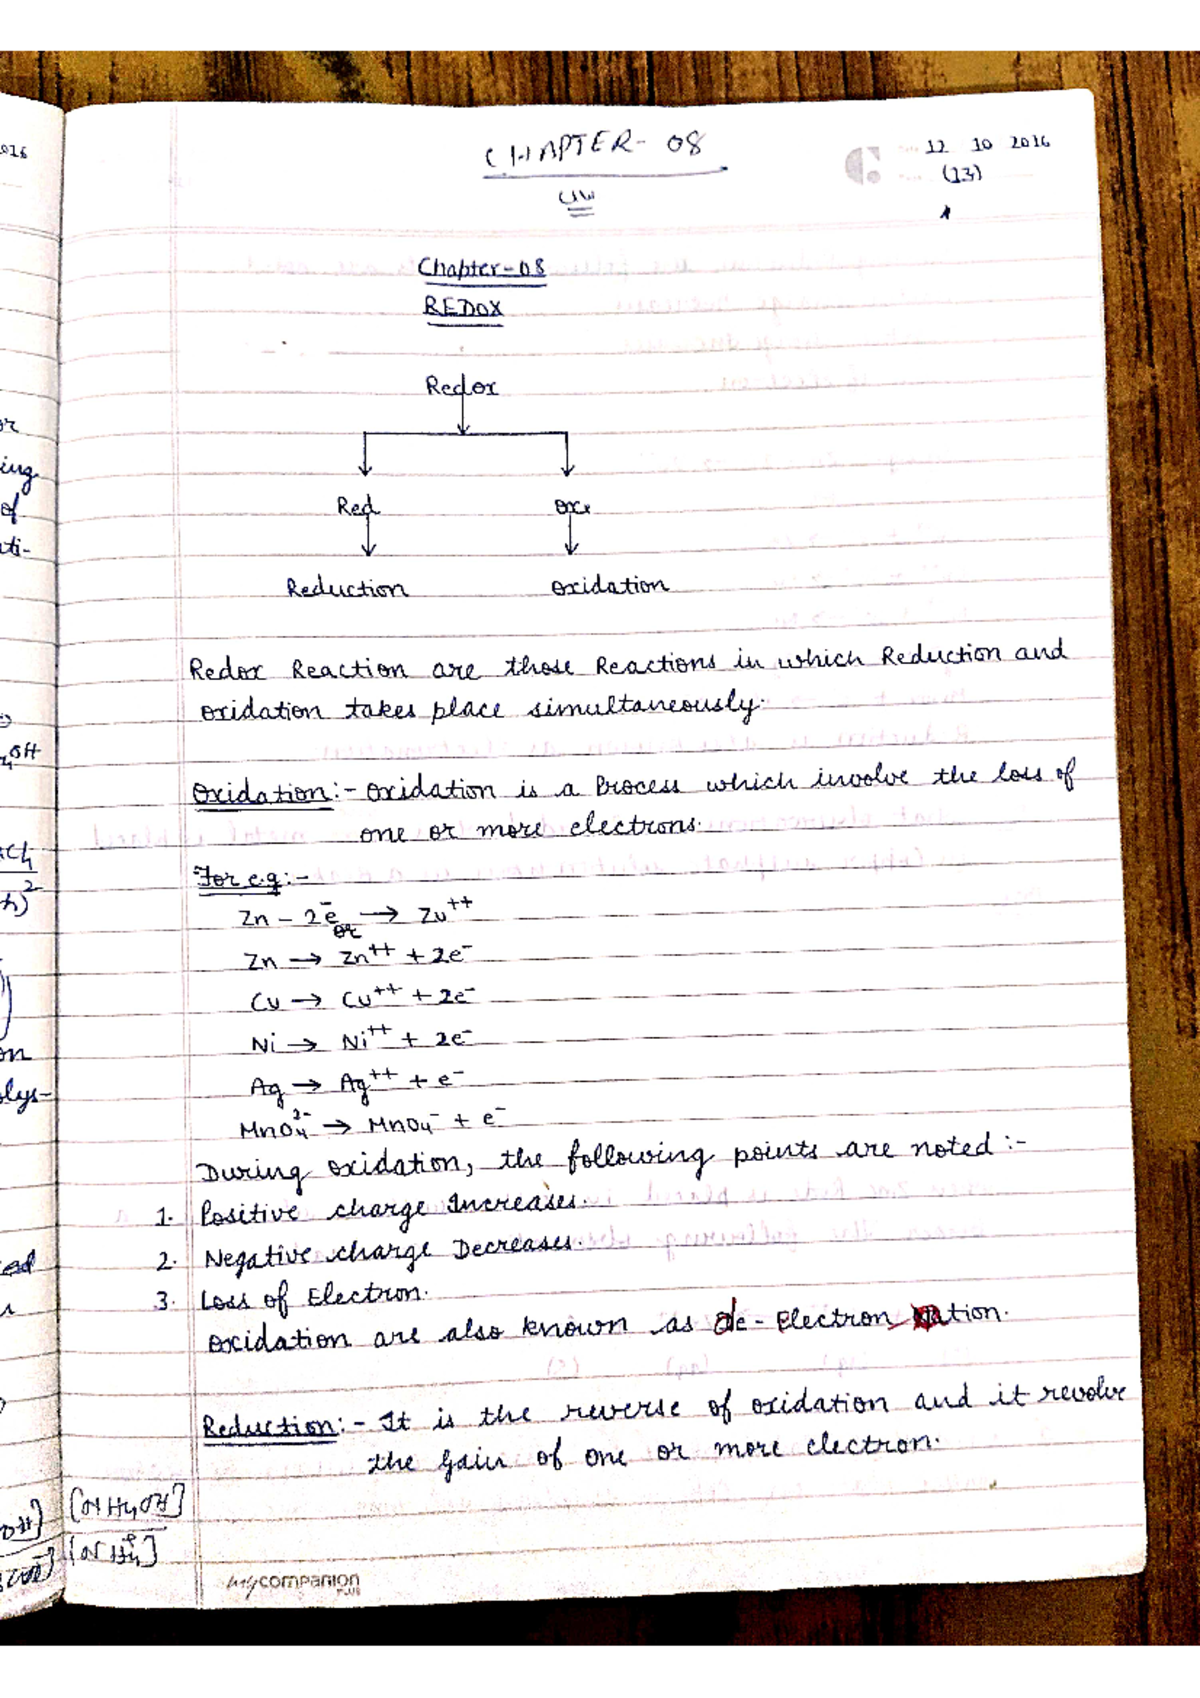 CHAPTER- 08
12 10 2016
(13)
CW
Chapter-08
REDOX
Redox
Red
Oxi
Reduction
Oxidation
Redox Reaction are those Reactions in which Reduction and
oxidation takes place simultaneously.
Oxidation:- Oxidation is a Process which involve the loss of
one or more electrons.
For e.g:-
Zn - 2e⁻ → Zn⁺⁺
or
Zn → Zn⁺⁺ + 2e⁻
Cu → Cu⁺⁺ + 2e⁻
Ni → Ni⁺⁺ + 2e⁻
Ag → Ag⁺⁺ + e⁻
MnO₄²⁻ → MnO₄⁻ + e⁻
During oxidation, the following points are noted :-
1. Positive charge Increases.
2. Negative charge Decreases.
3. Loss of Electron.
Oxidation are also known as de-Electronation.
Reduction:- It is the reverse of oxidation and it revolve
the gain of one or more electron.
[NH₄OH]
[NH₄⁺]
mycompanion
2016
or
ing
of
ati-
on
lys-